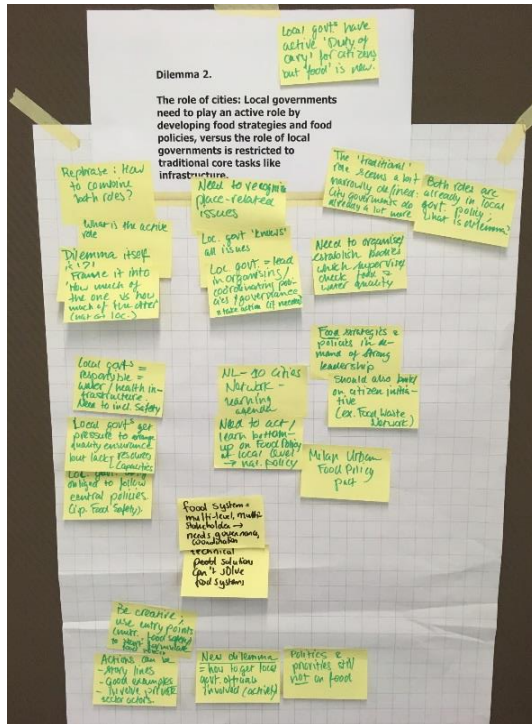 Local govts have
active 'Duty of
cary' for citizens
but 'food' is new.
Dilemma 2.
The role of cities: Local governments
need to play an active role by
developing food strategies and food
policies, versus the role of local
governments is restricted to
traditional core tasks like
infrastructure.
Rephrase: How
to combine
both roles?
What is the active
role
Dilemma itself
is !?!
Frame it into
'How much of
the one vs how
much of the other'
Need to recognise
place-related
issues
Loc. govt 'knows'
all issues
Loc govt. = lead
in organising/
coordinating
& governance
& take action (if needed)
The 'traditional'
role seems a bit
narrowly defined:
City governments do
already a lot more
Both roles are
already in local
govt. policy,
what is dilemma?
Need to organise/
establish bodies
which supervise
check food &
water quality
Food strategies &
policies in de-
mand of strong
leadership
Should also build
on citizen initia-
tive
(ex. Food Waste
Network)
Local govts =
responsible =
water/health in-
frastructure.
Need to incl. safety
Local govts get
pressure to
quality ensurance
but lack resources
& capacities
Loc. govt.
obliged to follow
central policies
(i.p. Food Safety).
NL - 10 cities
Network -
learning
agenda
Need to act/
learn bottom-
up on Food Policy
at local level
→ nat. policy
Milan Urban
Food Policy
pact
food system =
multi-level, multi-
stakeholder →
needs governance,
coordination
technical
solution
can't solve
food systems
Be creative,
use entry points
food safety
Actions can be
- story lines
- Good examples
- Involve private
sector actors.
New dilemma
= how to get local
govt. officials
involved/(active)
Politics &
priorities still
not on food